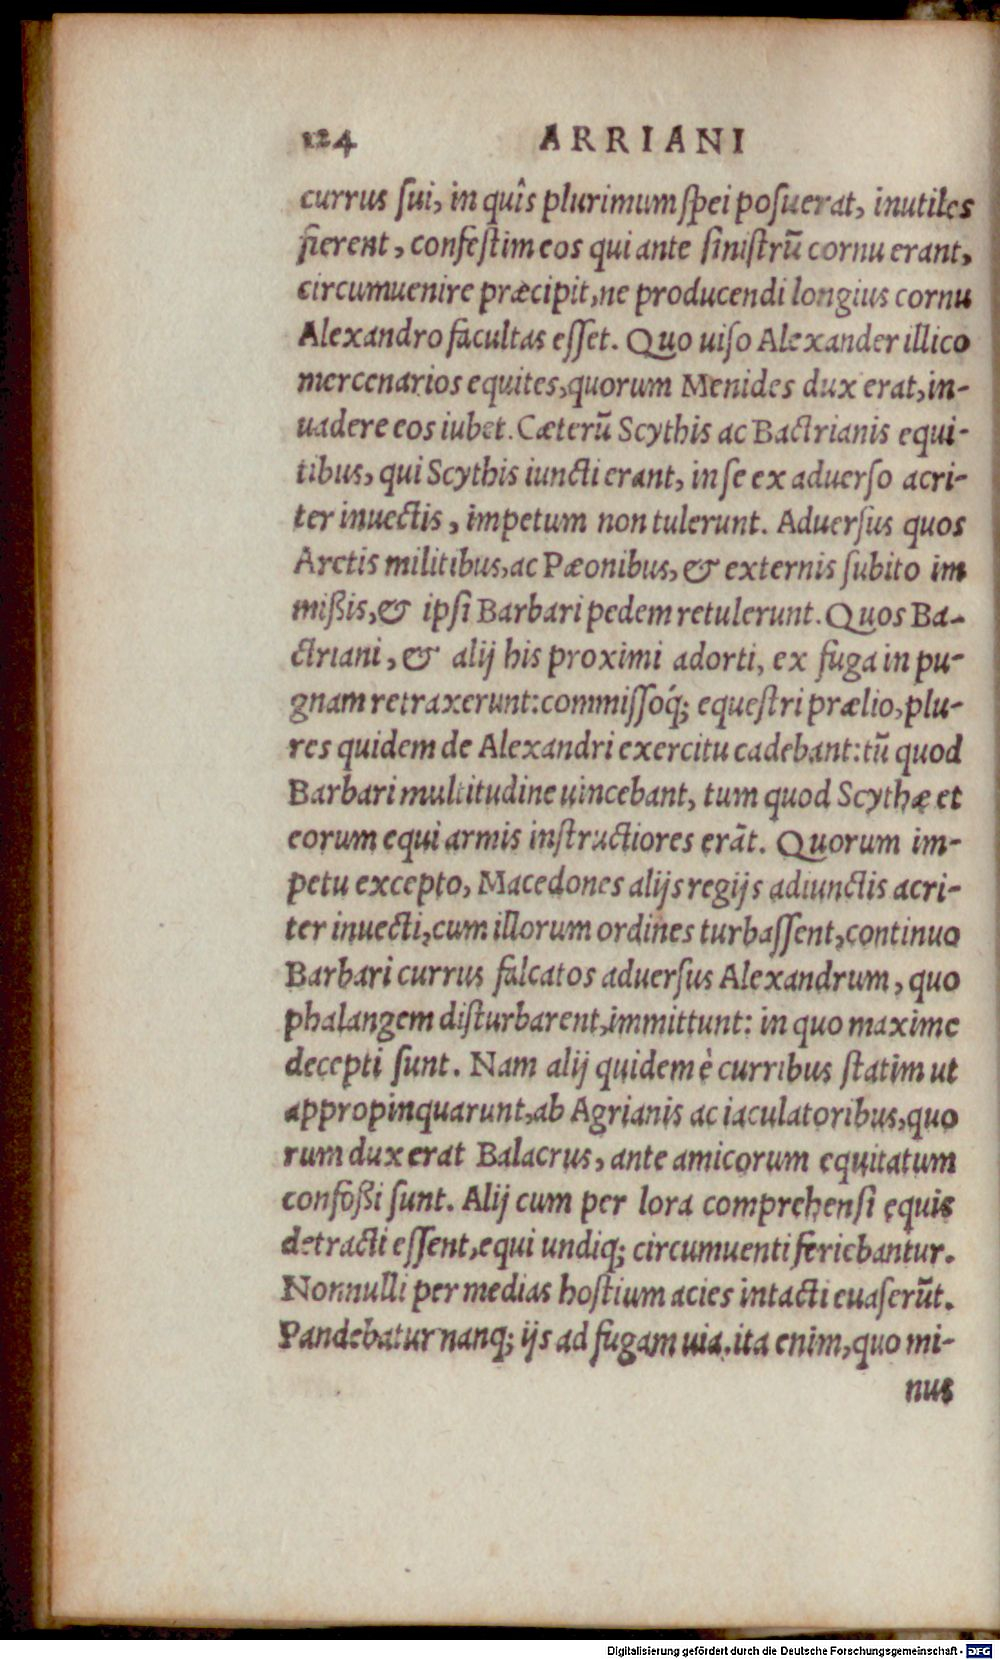 124 ARRIANI
currus sui, in quîs plurimum spei posuerat, inutiles
fierent, confestim eos qui ante sinistrũ cornu erant,
circumuenire præcipit, ne producendi longius cornu
Alexandro facultas esset. Quo uiso Alexander illico
mercenarios equites, quorum Menides dux erat, in-
uadere eos iubet. Cæterũ Scythis ac Bactrianis equi-
tibus, qui Scythis iuncti erant, in se ex aduerso acri-
ter inuectis, impetum non tulerunt. Aduersus quos
Aretis militibus, ac Pæonibus, & externis subito im
mißis, & ipsi Barbari pedem retulerunt. Quos Ba-
ctriani, & alij his proximi adorti, ex fuga in pu-
gnam retraxerunt: commissoq́; equestri prælio, plu-
res quidem de Alexandri exercitu cadebant: tũ quod
Barbari multitudine uincebant, tum quod Scythæ et
eorum equi armis instructiores erãt. Quorum im-
petu excepto, Macedones alijs regijs adiunctis acri-
ter inuecti, cum illorum ordines turbassent, continuo
Barbari currus falcatos aduersus Alexandrum, quo
phalangem disturbarent, immittunt: in quo maxime
decepti sunt. Nam alij quidem è curribus statim ut
appropinquarunt, ab Agrianis ac iaculatoribus, quo
rum dux erat Balacrus, ante amicorum equitatum
confoßi sunt. Alij cum per lora comprehensi equis
detracti essent, equi undiq; circumuenti feriebantur.
Nonnulli per medias hostium acies intacti euaserũt.
Pandebatur nanq; ijs ad fugam uia. ita enim, quo mi-
nus
Digitalisierung gefördert durch die Deutsche Forschungsgemeinschaft - DFG